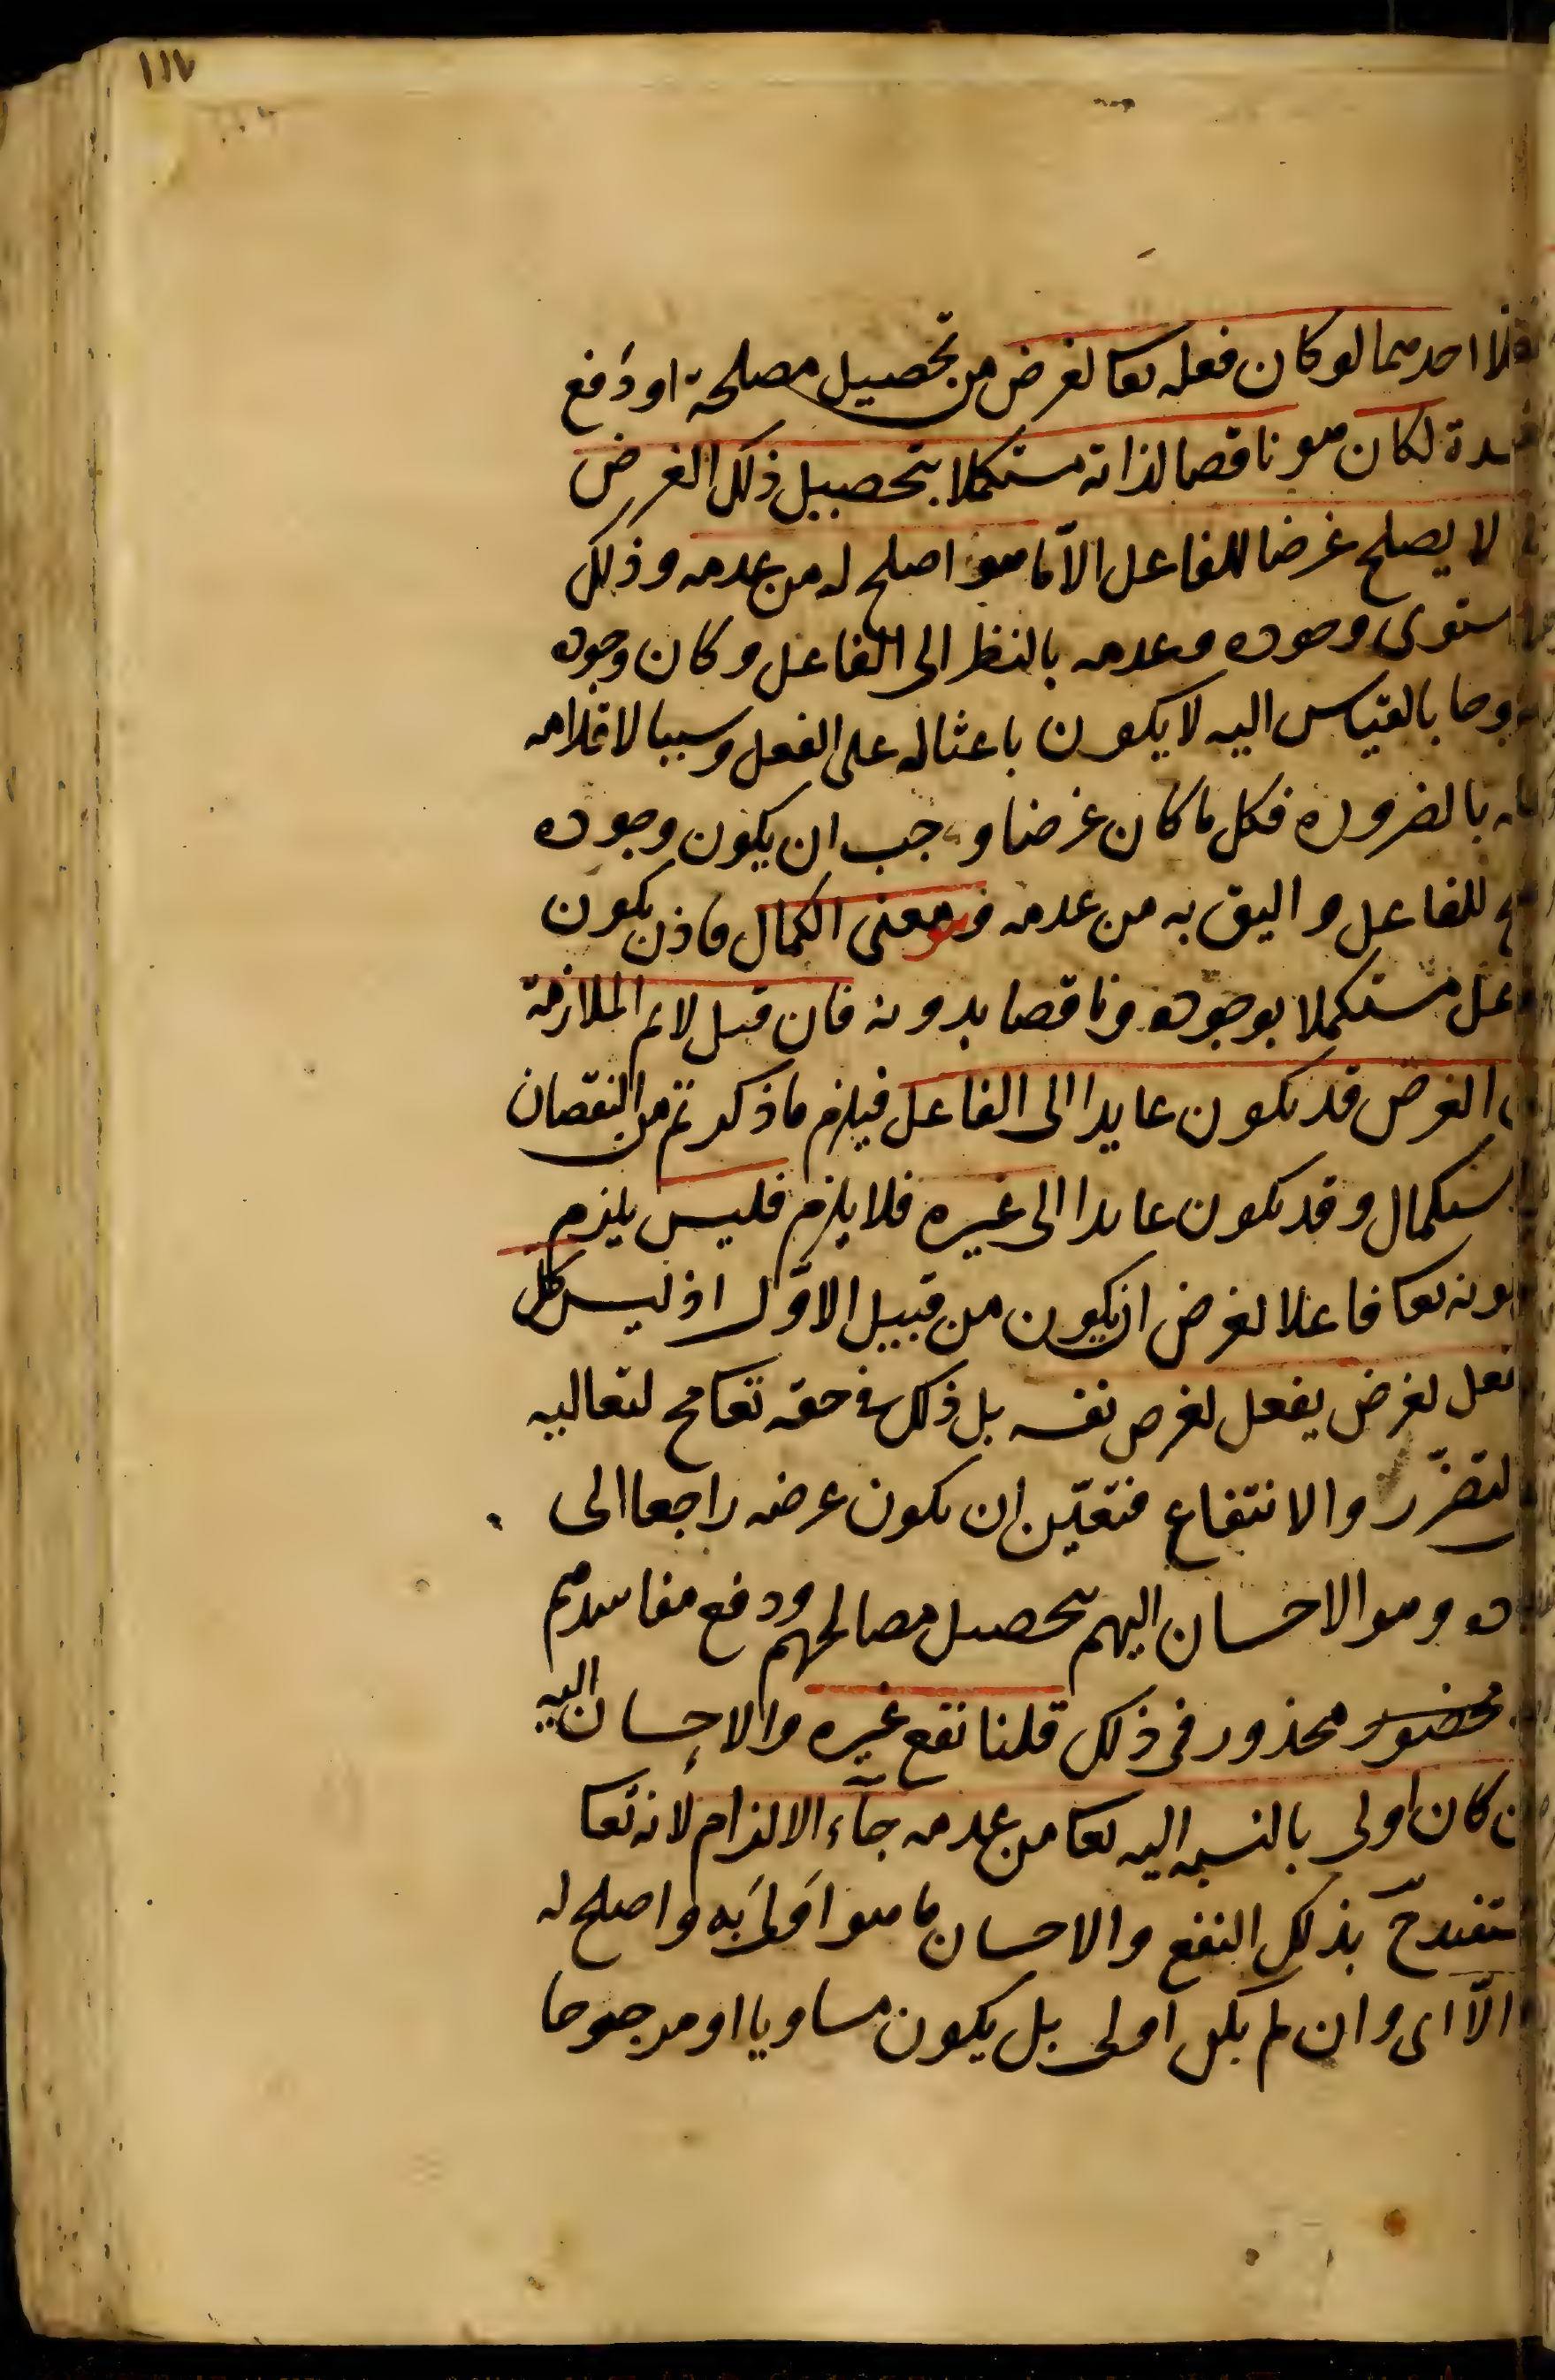 ١١٧
احدهما لو كان فعله تعا لغرض من تحصيل مصلحة او دفع
لكان هو ناقصا لذاته مستكملا بتحصيل ذلك الغرض
لا يصلح غرضا للفاعل الا ما هو اصلح له من عدمه وذلك
استوى وجوده وعدمه بالنظر الى الفاعل وكان وجوده
بالقياس اليه لا يكون باعثا له على الفعل وسببا لاقدامه
بالضرورة فكل ما كان غرضا وجب ان يكون وجوده
للفاعل واليق به من عدمه وهو معنى الكمال فاذن يكون
مستكملا بوجوده وناقصا بدونه فان قيل لانم الملازمة
الغرض قد يكون عايدا الى الفاعل فيلزم ما ذكرتم من النقصان
وقد يكون عايدا الى غيره فلا يلزم فليس يلزم
تعا فاعلا لغرض ان يكون من قبيل الاول اذ ليس كل
لغرض يفعل لغرض نفسه بل ذلك في حقه تعا مح لتعاليه
التضرر والانتفاع فتعين ان يكون غرضه راجعا الى
وهو الاحسان اليهم بتحصيل مصالحهم ودفع مفاسدهم
محذور في ذلك قلنا نفع غيره والاحسان اليه
كان اولى بالنسبة اليه تعا من عدمه جآء الالزام لانه تعا
بذلك النفع والاحسان ما هو اولى به واصلح له
الا اى وان لم يكن اولى بل يكون مساويا او مرجوحا